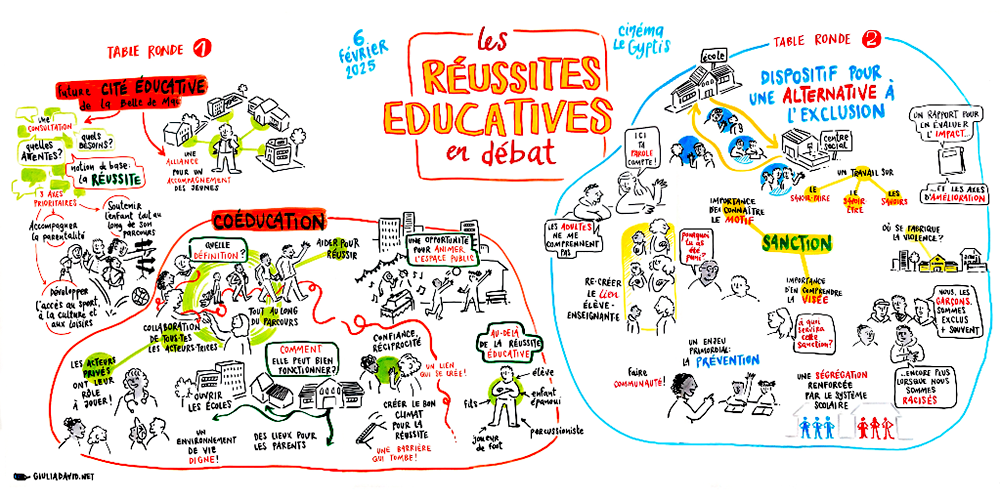 6
FÉVRIER
2025
les
RÉUSSITES
EDUCATIVES
en débat
cinéma
Le Gyptis
TABLE RONDE 1
Future CITÉ ÉDUCATIVE
de la Belle de Mai
une
CONSULTATION
quels
BESOINS?
quelles
ATTENTES?
notion de base:
la RÉUSSITE
3 AXES
PRIORITAIRES
Accompagner
la parentalité
Soutenir
l'enfant tout au
long de son
parcours
Développer
l'accès au sport,
à la culture et
aux loisirs
UNE
ALLIANCE
POUR UN
ACCOMPAGNEMENT
DES JEUNES
COÉDUCATION
QUELLE
DÉFINITION?
AIDER POUR
RÉUSSIR
TOUT AU LONG
DU PARCOURS
COLLABORATION
DE TOUS·TES
LES ACTEURS·TRICES
UNE OPPORTUNITÉ
POUR ANIMER
L'ESPACE PUBLIC
LES ACTEURS
PRIVÉS
ONT LEUR
RÔLE
À JOUER!
COMMENT
ELLE PEUT BIEN
FONCTIONNER?
OUVRIR
LES ÉCOLES
UN
ENVIRONNEMENT
DE VIE
DIGNE!
DES LIEUX POUR
LES PARENTS
CONFIANCE,
RÉCIPROCITÉ
UN LIEN
QUI SE CRÉE!
CRÉER LE BON
CLIMAT
POUR LA
RÉUSSITE
UNE BARRIÈRE
QUI TOMBE!
AU-DELÀ
DE LA RÉUSSITE
ÉDUCATIVE
élève
enfant
épanoui
fils
percussioniste
joueur
de foot
TABLE RONDE 2
DISPOSITIF POUR
UNE ALTERNATIVE À
L'EXCLUSION
école
centre
social
ICI
TA
PAROLE
COMPTE!
LES ADULTES
NE ME
COMPRENNENT
PAS
RE-CRÉER
LE lien
ÉLÈVE-
ENSEIGNANTE
UN TRAVAIL SUR
LE
SAVOIR-FAIRE
LE
SAVOIR
ÊTRE
LES
SAVOIRS
UN RAPPORT POUR
EN ÉVALUER
L'IMPACT...
...ET LES AXES
D'AMÉLIORATION
IMPORTANCE
D'EN CONNAÎTRE
LE MOTIF
SANCTION
pourquoi
tu as
été
puni?
IMPORTANCE
D'EN COMPRENDRE
LA VISÉE
à quoi
servira
cette
sanction?
OÙ SE FABRIQUE
LA VIOLENCE?
NOUS, LES
GARÇONS,
SOMMES
EXCLUS
+ SOUVENT
...ENCORE PLUS
LORSQUE NOUS
SOMMES
RACISÉS
UN ENJEU
PRIMORDIAL:
LA PRÉVENTION
faire
COMMUNAUTÉ!
UNE SÉGRÉGATION
RENFORCÉE
PAR LE SYSTÈME
SCOLAIRE
GIULIADAVID.NET